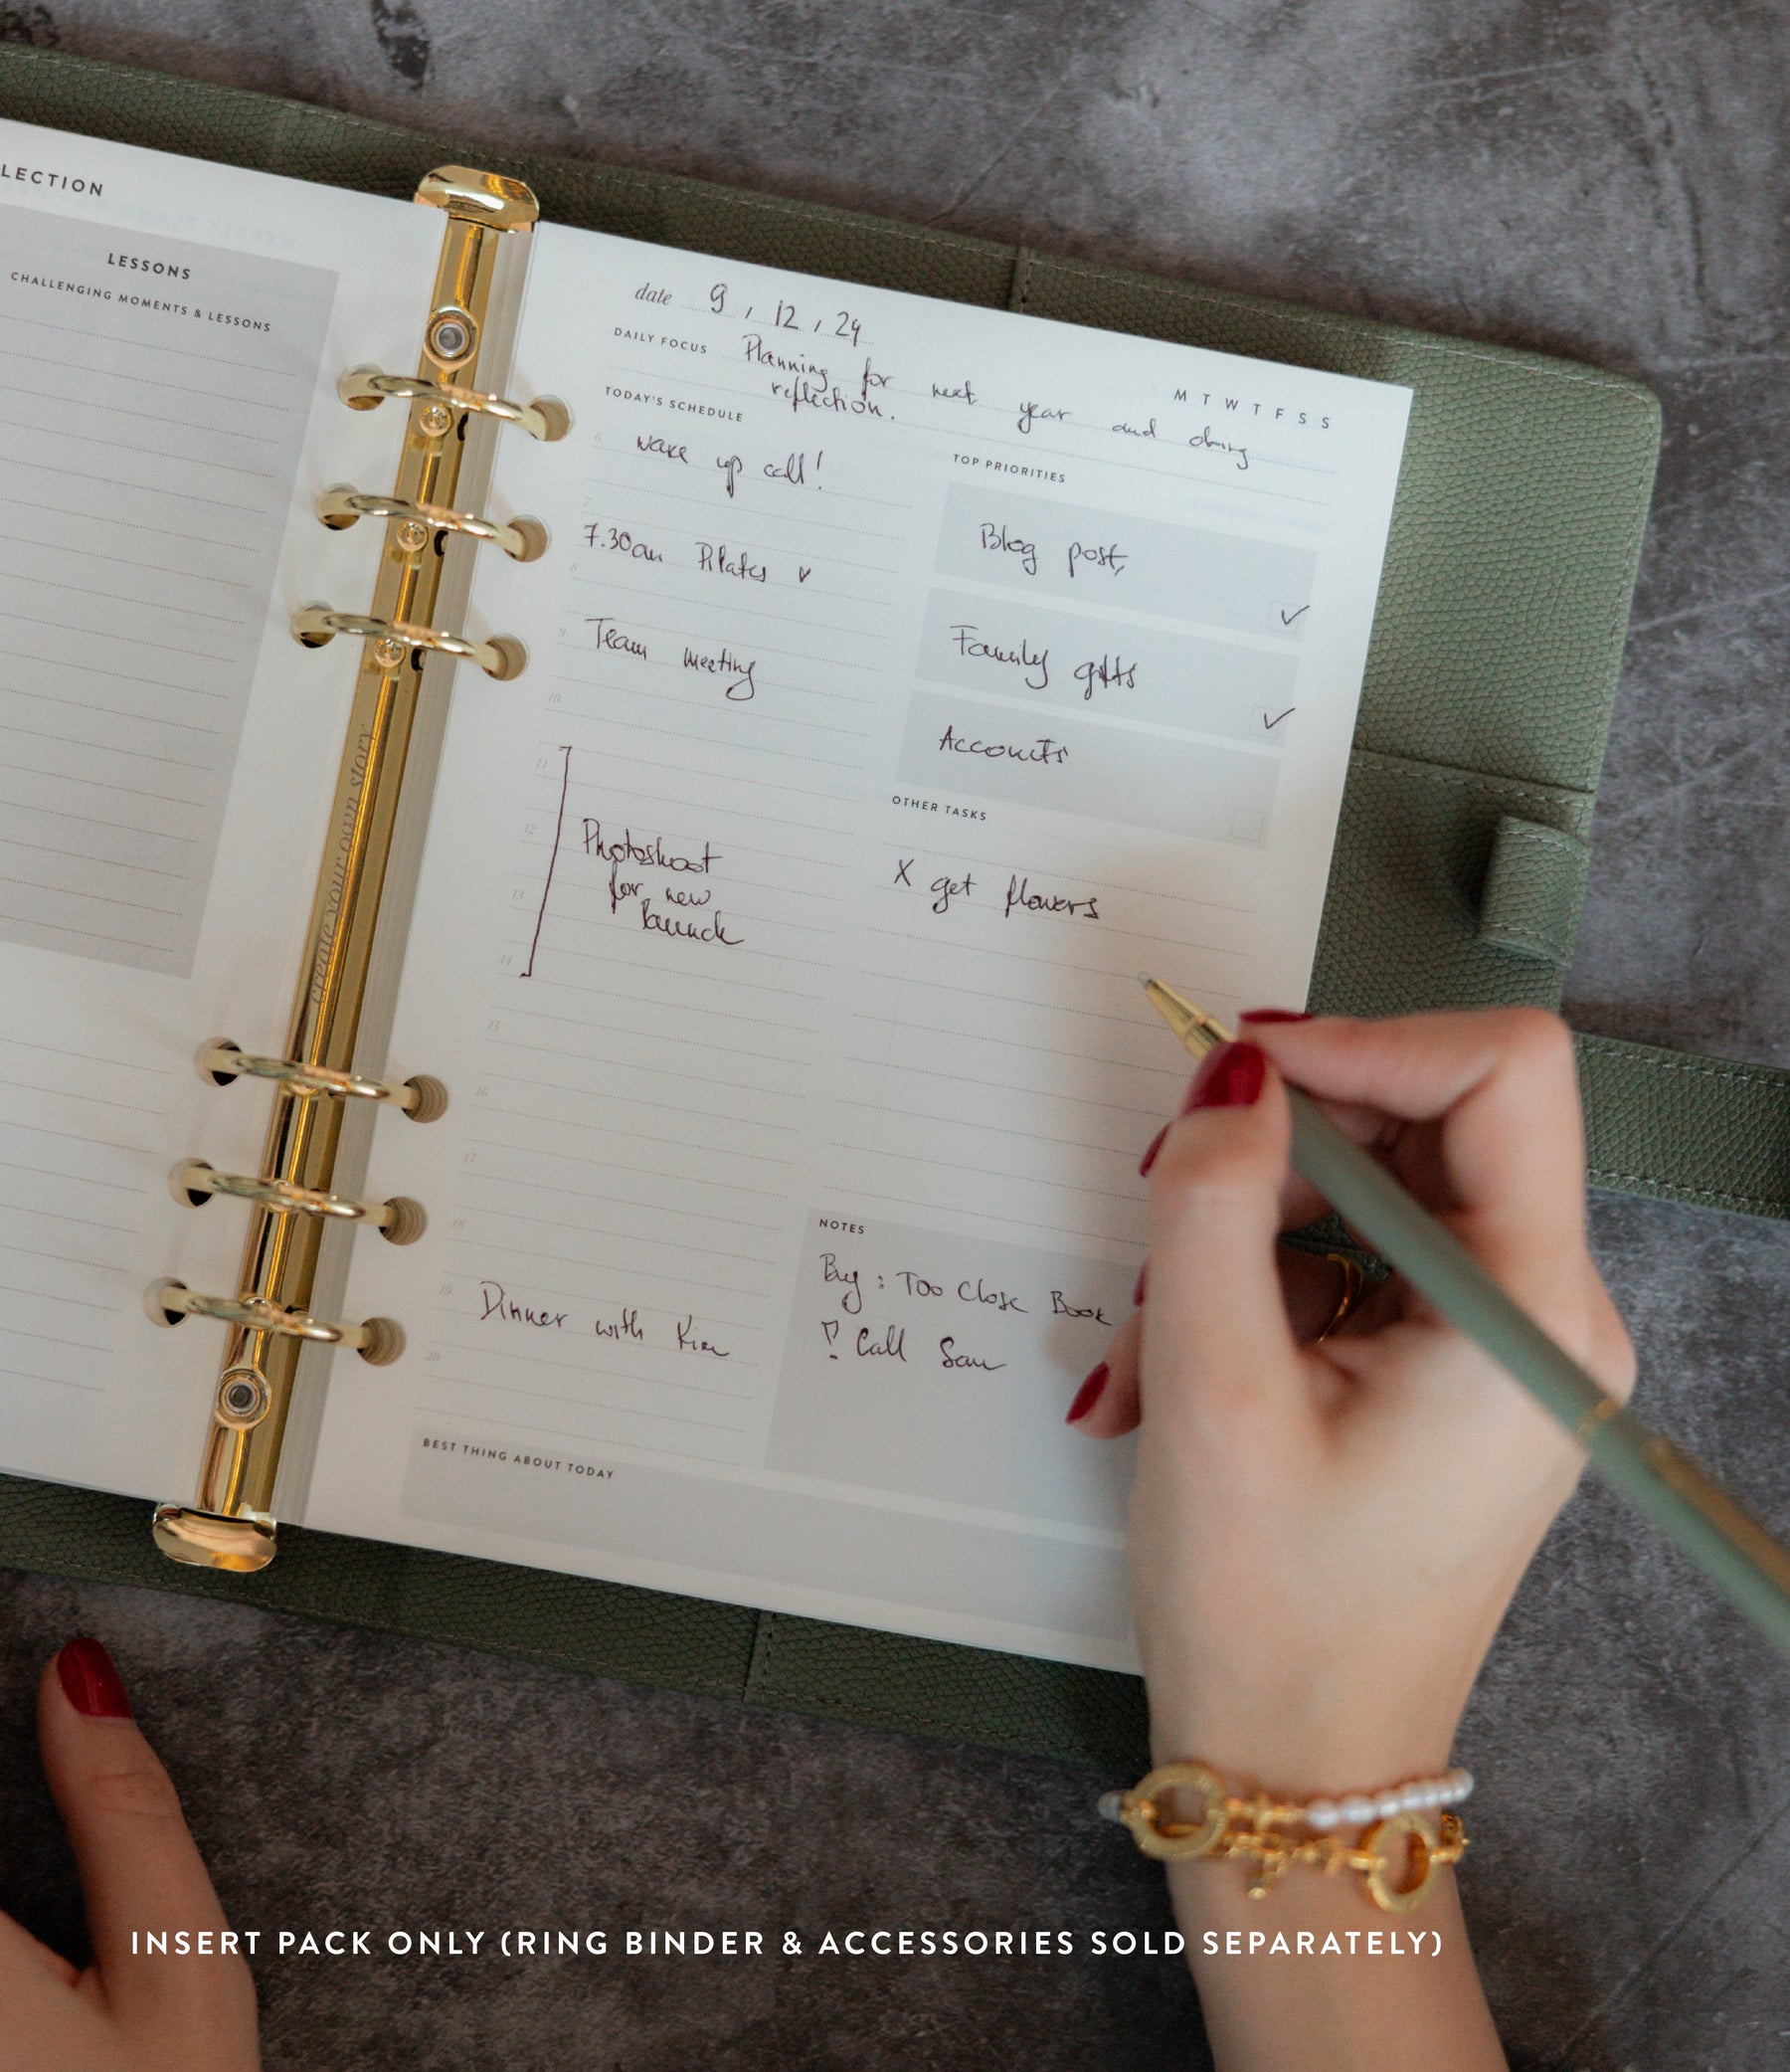 LECTION
LESSONS
CHALLENGING MOMENTS & LESSONS
create your own story.
date 9 , 12 , 24
M T W T F S S
DAILY FOCUS Planning for next year and doing
reflection.
TODAY'S SCHEDULE
6 wake up call!
7
7.30am Pilates
8
9 Team meeting
10
11
12 Photoshoot
13 for new
launch
14
15
16
17
18
19 Dinner with Kim
20
TOP PRIORITIES
Blog post,
✓
Family gifts
✓
Accounts
OTHER TASKS
X get flowers
NOTES
Buy : Too Close Book
! Call Sam
BEST THING ABOUT TODAY
INSERT PACK ONLY (RING BINDER & ACCESSORIES SOLD SEPARATELY)